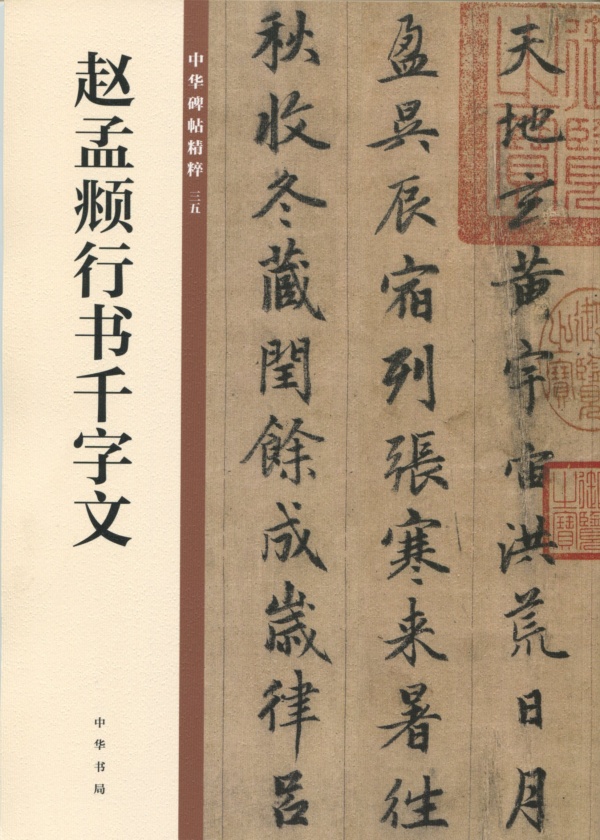 赵孟𫖯行书千字文
中华碑帖精粹 三五
中华书局
天地玄黄宇宙洪荒日月
盈昃辰宿列張寒来暑往
秋收冬藏閏餘成歲律吕